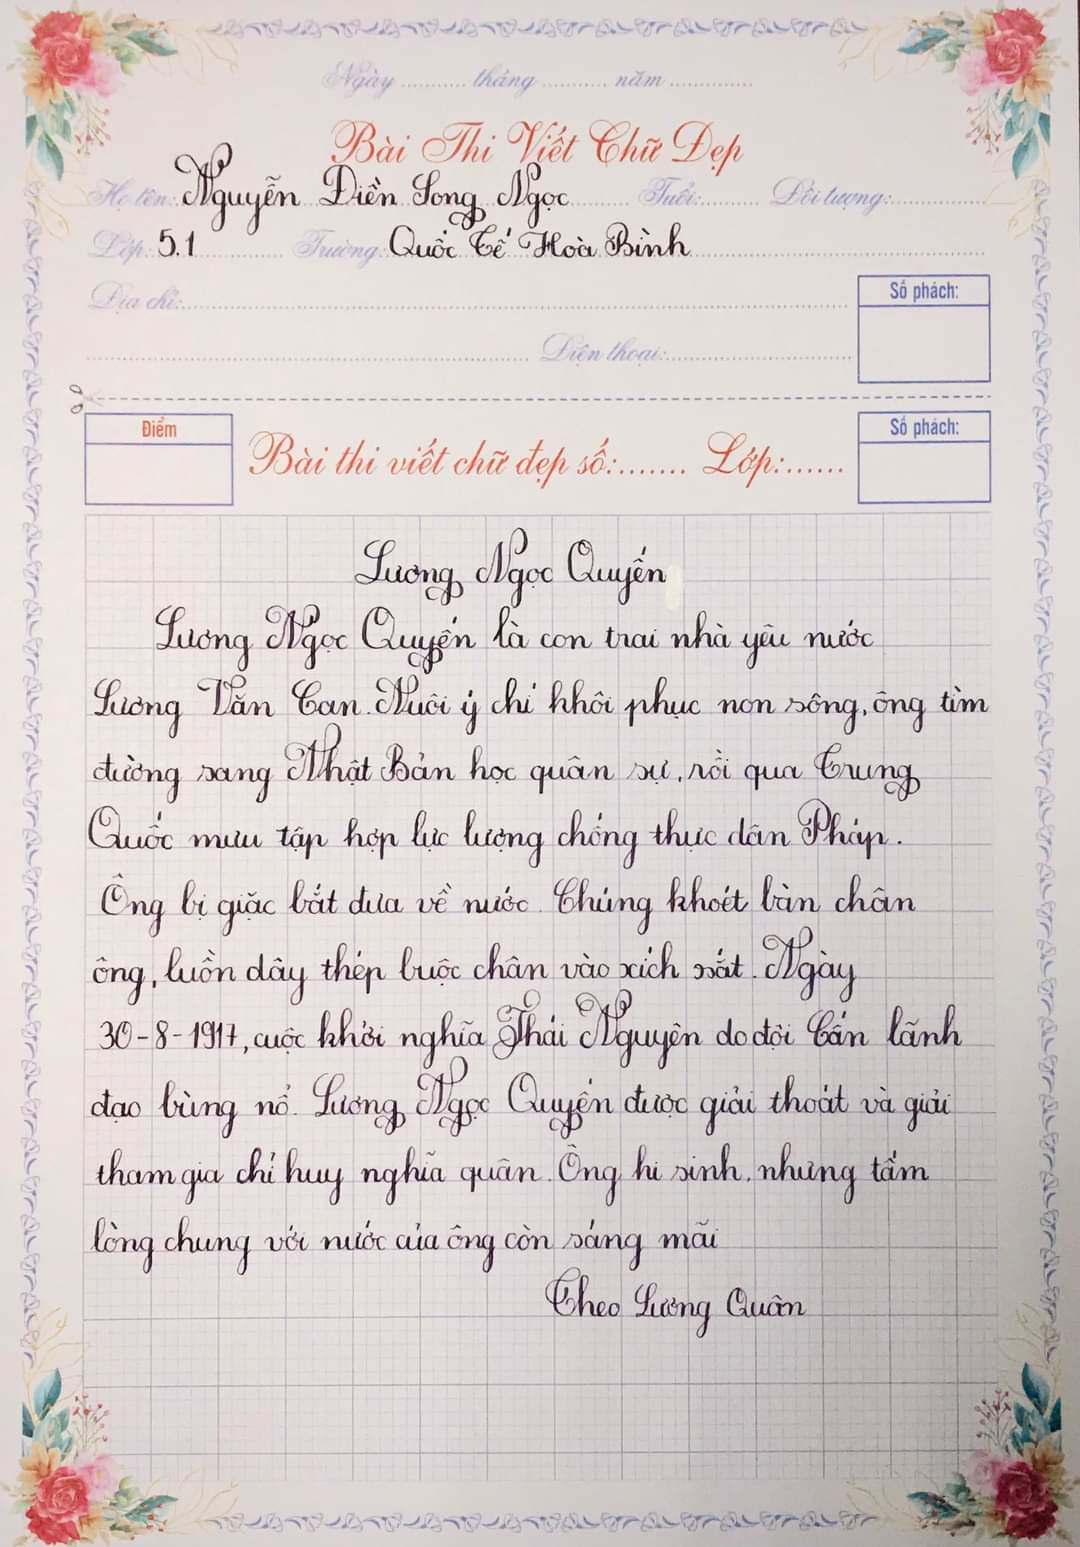 Ngày ........... tháng ........... năm ..............
Bài Thi Viết Chữ Đẹp
Họ tên: Nguyễn Diền Song Ngọc Tuổi:.......... Đối tượng:................
Lớp: 5.1 Trường: Quốc Tế Hoà Bình
Địa chỉ:
Số phách:
Điện thoại:
Điểm
Bài thi viết chữ đẹp số:....... Lớp:......
Số phách:
Lương Ngọc Quyến
Lương Ngọc Quyến là con trai nhà yêu nước
Lương Văn Can. Nuôi ý chí khôi phục non sông, ông tìm
đường sang Nhật Bản học quân sự, rồi qua Trung
Quốc mưu tập hợp lực lượng chống thực dân Pháp.
Ông bị giặc bắt đưa về nước. Chúng khoét bàn chân
ông, luồn dây thép buộc chân vào xích sắt. Ngày
30-8-1917, cuộc khởi nghĩa Thái Nguyên do đội Cấn lãnh
đạo bùng nổ. Lương Ngọc Quyến được giải thoát và giải
tham gia chỉ huy nghĩa quân. Ông hi sinh, nhưng tấm
lòng chung với nước của ông còn sáng mãi
Theo Lương Quân